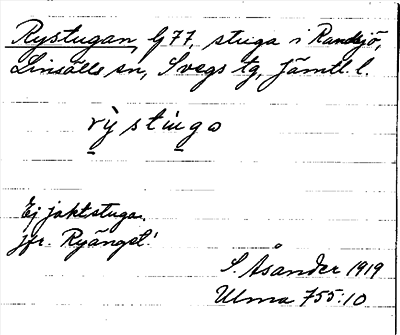 Rystugan, bj 77, stuga i Randsjö,
Linsälls sn, Svegs tg, Jämtl. l.
rỳstuga
Ej jaktstuga.
jfr. Ryängst!
S. Åsander 1919
Ulma 755:10